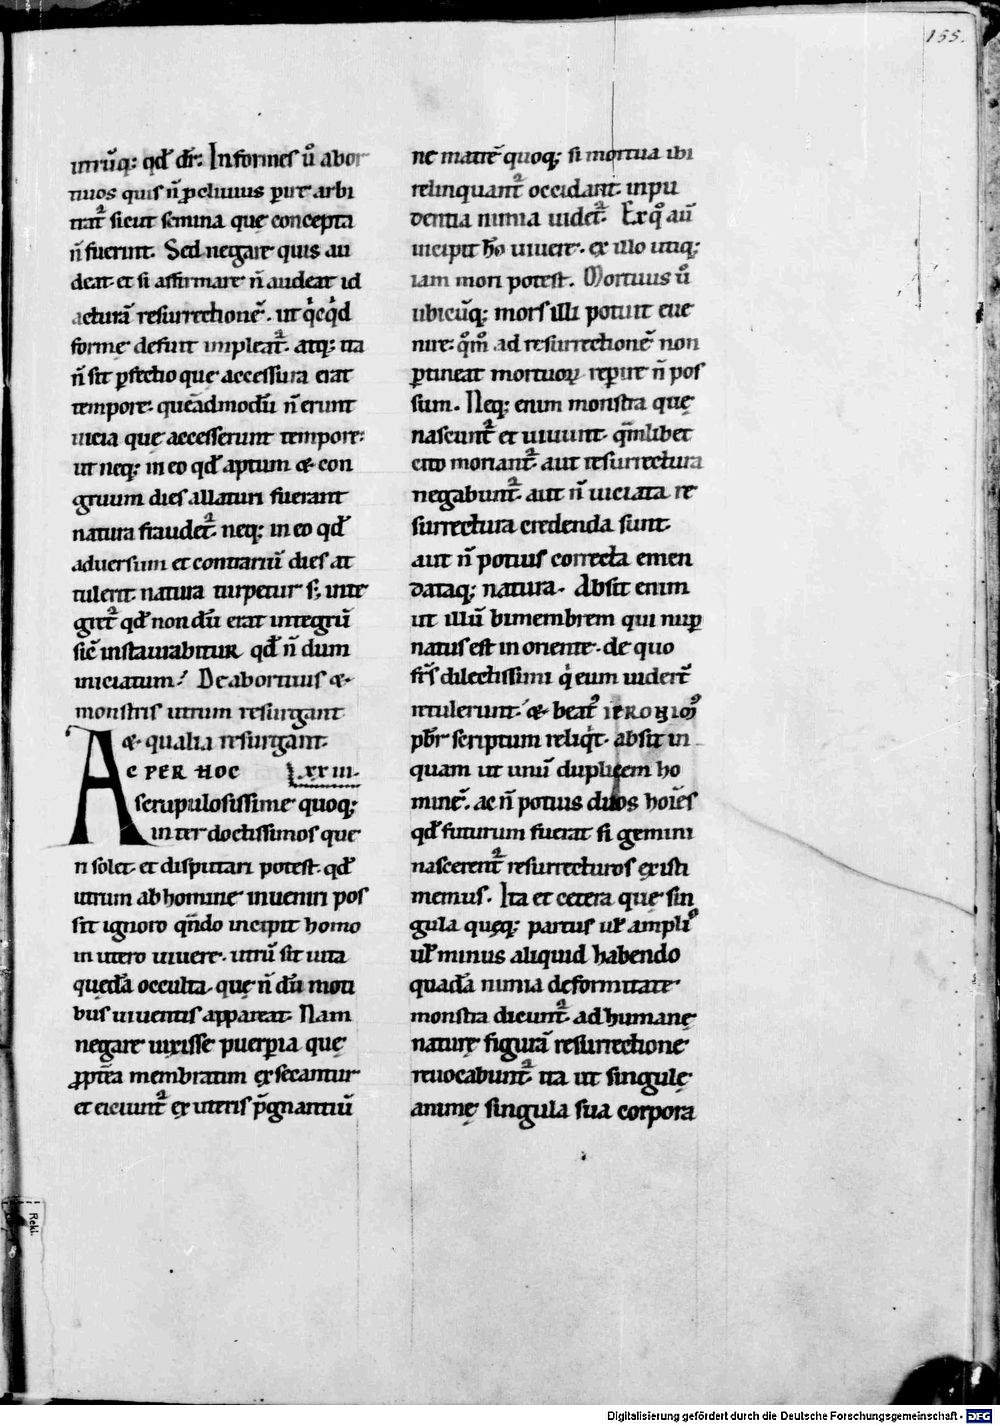 155.
utrūq; qd̄ dr̄. Informes ū̊ abor
tiuos quis n̄ ꝓcliuius ꝑire arbi
trat᷑ sicut semina quę concepta
n̄ fuerint. Sed negare quis au
deat. et si affirmare n̄ audeat id
acturā resurrectionē. ut qͥcqͥd
formę defuit impleat᷑. atq; ita
n̄ sit ꝑfectio quę accessura erat
tempore. queādmodū n̄ erunt
uicia quę accesserunt tempore:
ut neq; in eo qd̄ aptum & con
gruum dies allaturi fuerant
natura fraudet᷑. neq; in eo qd̄
aduersum et contrariū dies at
tulerit natura turpetur s; inte
gret᷑ qd̄ non dū erat integrū
sic̄ instaurabitur qd̄ n̄ dum
uiciatum. De abortiuis &
monstris utrum resurgant
& qualia resurgant.
AC PER HOC LXXIII.
scrupulosissime quoq;
inter doctissimos que
ri solet. et disputari potest. qd̄
utrum ab homine inueniri pos
sit ignoro qn̄do incipit homo
in utero uiuere. utrū sit uita
quędā occulta. quę n̄ dū moti
bus uiuentis appareat. Nam
negare uixisse puerꝑia quę
ꝓpt̄ea membratim exsecantur
et eiciunt᷑ ex uteris p̄gnantiū
ne matrē quoq; si mortua ibi
relinquant᷑ occidant. inpu
dentia nimia uidet᷑. Ex qͦ aū
incipit hō uiuere. ex illo utiq;
iam mori potest. Mortuus ū̊
ubicūq; mors illi potuit eue
nire. qm̊ ad resurrectionē non
ꝑtineat mortuoꝝ reperire n̄ pos
sum. Neq; enim monstra quę
nascunt᷑ et uiuunt. qm̄libet
cito moriant᷑. aut resurrectura
negabunt᷑. aut n̄ uiciata re
surrectura credenda sunt.
aut n̄ potius correcta emen
dataq; natura. Absit enim
ut illū bimembrem qui nuꝑ
natus est in oriente. de quo
fr̄s dilectissimi qͥ eum uidert̄
retulerunt. & beat᷒ IERONIM᷒
pb̄r scriptum reliqͥt. absit in
quam ut unū duplicem ho
minē. ac n̄ potius duos hoīes
qd̄ futurum fuerat si gemini
nascerent᷑ resurrecturos existi
memus. Ita et cetera quę sin
gula quęq; partus ul̄ ampli᷒
ul̄ minus aliquid habendo
quadā nimia deformitate
monstra dicunt᷑. ad humanę
naturę figurā resurrectione
reuocabunt᷑. ita ut singulę
animę singula sua corpora
Rekl.
Digitalisierung gefördert durch die Deutsche Forschungsgemeinschaft - DFG